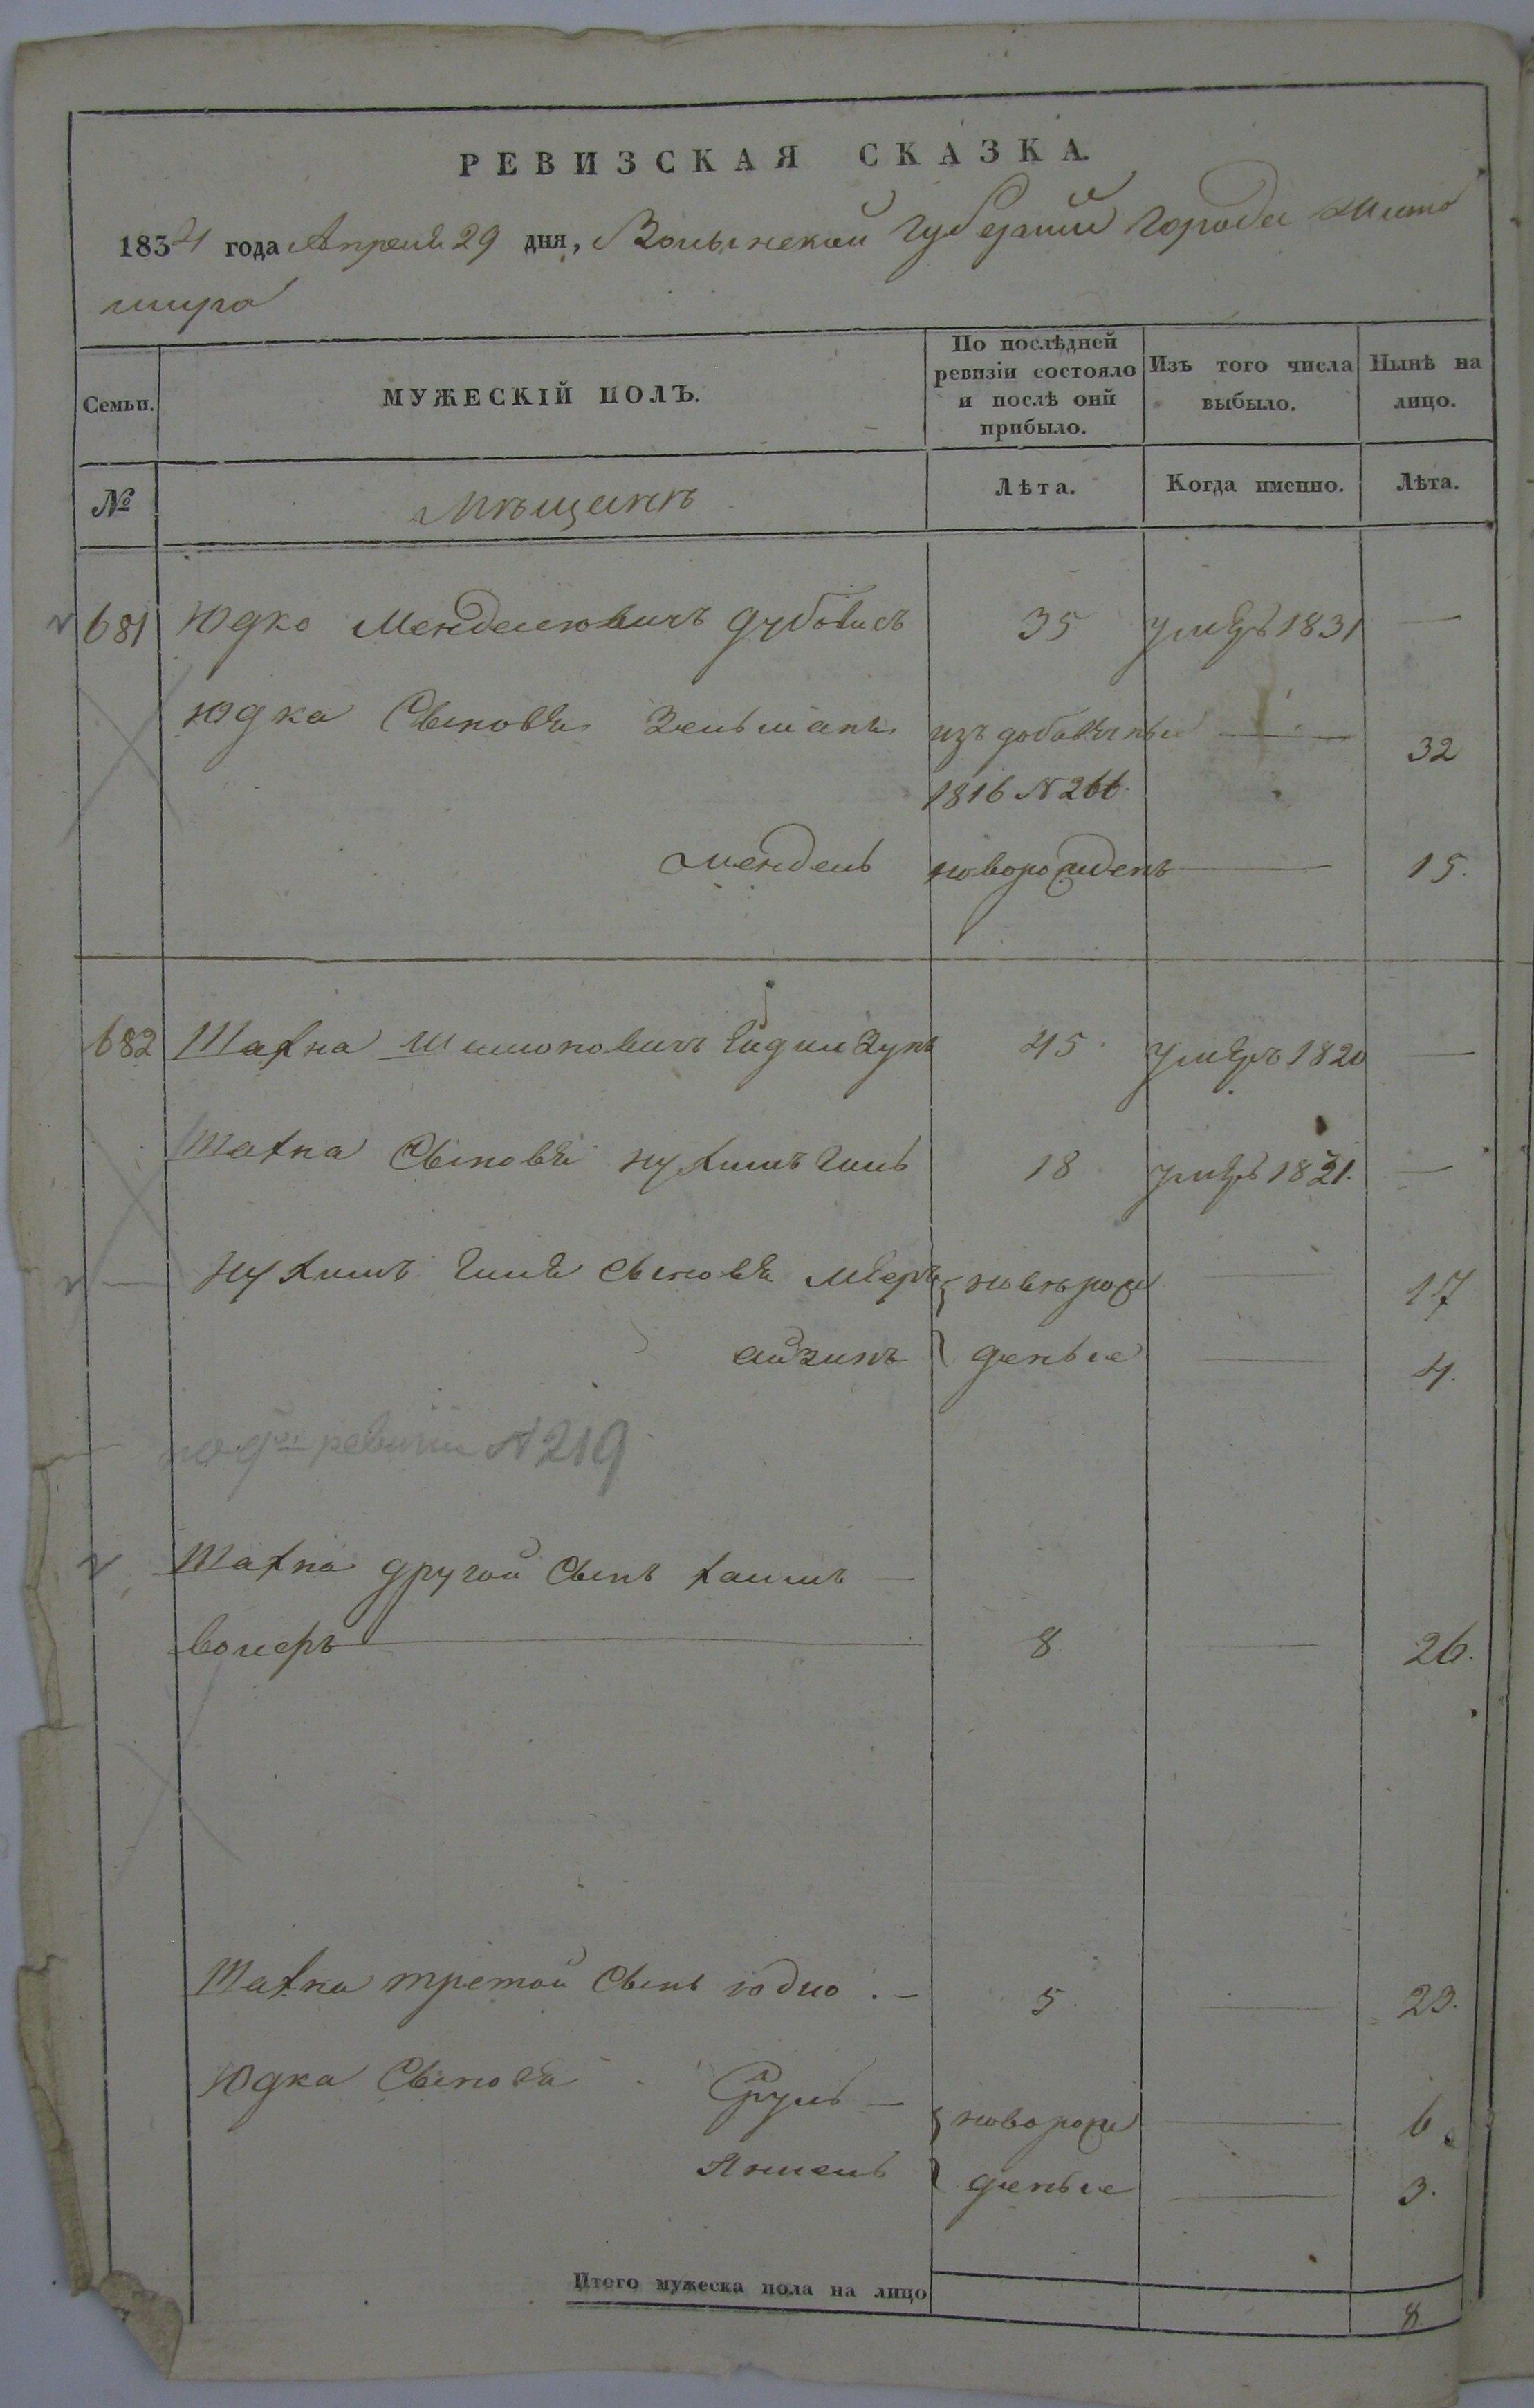 РЕВИЗСКАЯ СКАЗКА.
1834 года Апреля 29 дня, Волынской Губернии Города Жито
мира
Семьи.
МУЖЕСКІЙ ПОЛЪ.
По послѣдней ревизіи состояло и послѣ оній прибыло.
Изъ того числа выбыло.
Нынѣ на лицо.
№
Мѣщанъ
Лѣта.
Когда именно.
Лѣта.
681 Юдко Менделювичъ Дубовисъ 35 умеръ 1831 —
Юдка Сыновья Зельманъ изъ добавочныхъ — 32
1816 № 266.
Мендель новорожденъ — 15.
682 Шахна Шимоновичъ 45 умеръ 1820 —
Шахна Сыновья Нухимъ Гиль 18 умеръ 1831. —
Нухимъ Гиля Сыновья Мееръ новорож — 17
Айзикъ денные — 4.
по 9й ревизии № 219
Шахна другой Сынъ Хаимъ —
Волеръ — 8 — 26.
Шахна третой Сынъ Юдко. — 5 — 23.
Юдка Сыновья Сруль — новорож — 6
Аншель денные — 3.
Итого мужеска пола на лицо 8